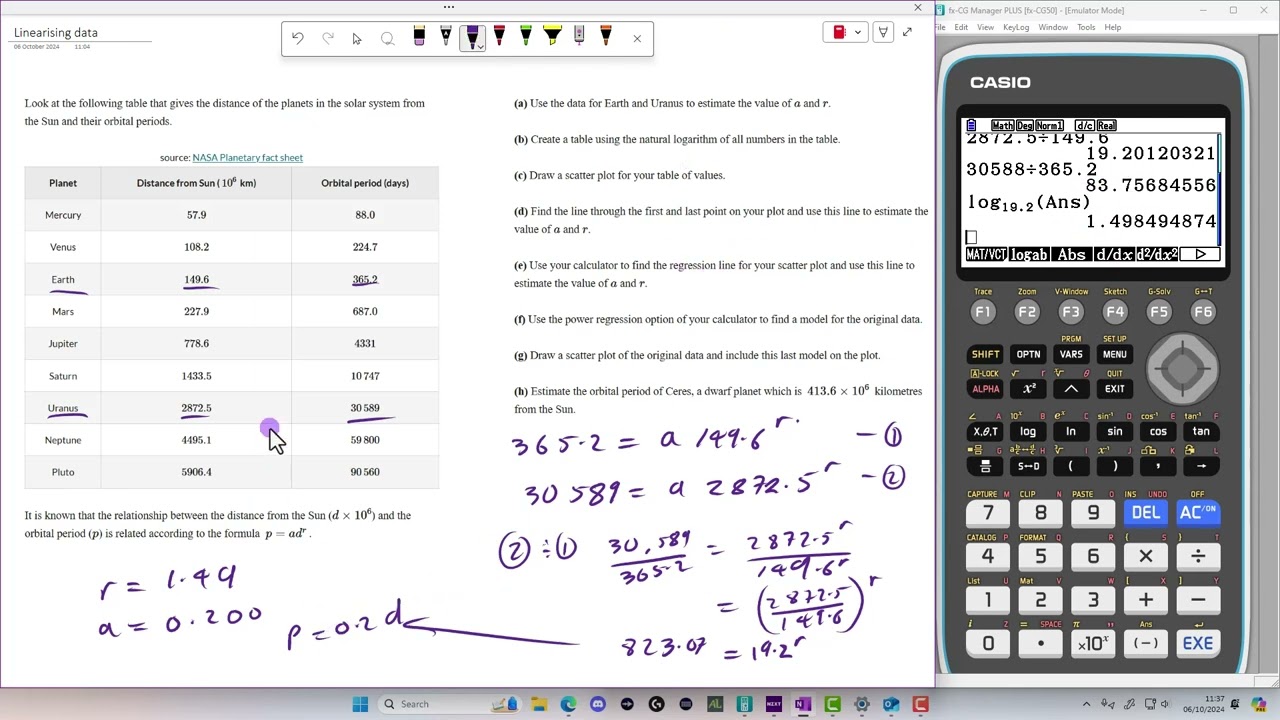 Linearising data
06 October 2024 11:04
Look at the following table that gives the distance of the planets in the solar system from
the Sun and their orbital periods.
source: NASA Planetary fact sheet
Planet Distance from Sun ( 10⁶ km) Orbital period (days)
Mercury 57.9 88.0
Venus 108.2 224.7
Earth 149.6 365.2
Mars 227.9 687.0
Jupiter 778.6 4331
Saturn 1433.5 10 747
Uranus 2872.5 30 589
Neptune 4495.1 59 800
Pluto 5906.4 90 560
It is known that the relationship between the distance from the Sun (d × 10⁶) and the
orbital period (p) is related according to the formula p = adʳ .
r = 1.49
a = 0.200
p = 0.2 d
(a) Use the data for Earth and Uranus to estimate the value of a and r.
(b) Create a table using the natural logarithm of all numbers in the table.
(c) Draw a scatter plot for your table of values.
(d) Find the line through the first and last point on your plot and use this line to estimate the
value of a and r.
(e) Use your calculator to find the regression line for your scatter plot and use this line to
estimate the value of a and r.
(f) Use the power regression option of your calculator to find a model for the original data.
(g) Draw a scatter plot of the original data and include this last model on the plot.
(h) Estimate the orbital period of Ceres, a dwarf planet which is 413.6 × 10⁶ kilometres
from the Sun.
365.2 = a 149.6ʳ – ①
30 589 = a 2872.5ʳ – ②
② ÷ ① 30,589 / 365.2 = 2872.5ʳ / 149.6ʳ
= (2872.5 / 149.6)ʳ
823.07 = 19.2ʳ
fx-CG Manager PLUS [fx-CG50] - [Emulator Mode]
File Edit View KeyLog Window Tools Help
CASIO
Math Deg Norm1 d/c Real
2872.5÷149.6
19.20120321
30588÷365.2
83.75684556
log₁₉.₂(Ans)
1.498494874
MAT/VCT logab Abs d/dx d²/dx² ▷
Trace Zoom V-Window Sketch G-Solv G↔T
F1 F2 F3 F4 F5 F6
PRGM SET UP
SHIFT OPTN VARS MENU
A-LOCK √ r ˣ√ θ QUIT
ALPHA x² ^ EXIT
∠ A 10ˣ B eˣ C sin⁻¹ D cos⁻¹ E tan⁻¹ F
X,θ,T log ln sin cos tan
S↔D ( ) , →
CAPTURE M CLIP N PASTE O INS UNDO OFF
7 8 9 DEL AC/ON
CATALOG P FORMAT Q R { S } T
4 5 6 × ÷
List U Mat V W [ X ] Y
1 2 3 + −
i Z = SPACE π " Ans
0 • ×10ˣ (−) EXE
Search
11:37
06/10/2024